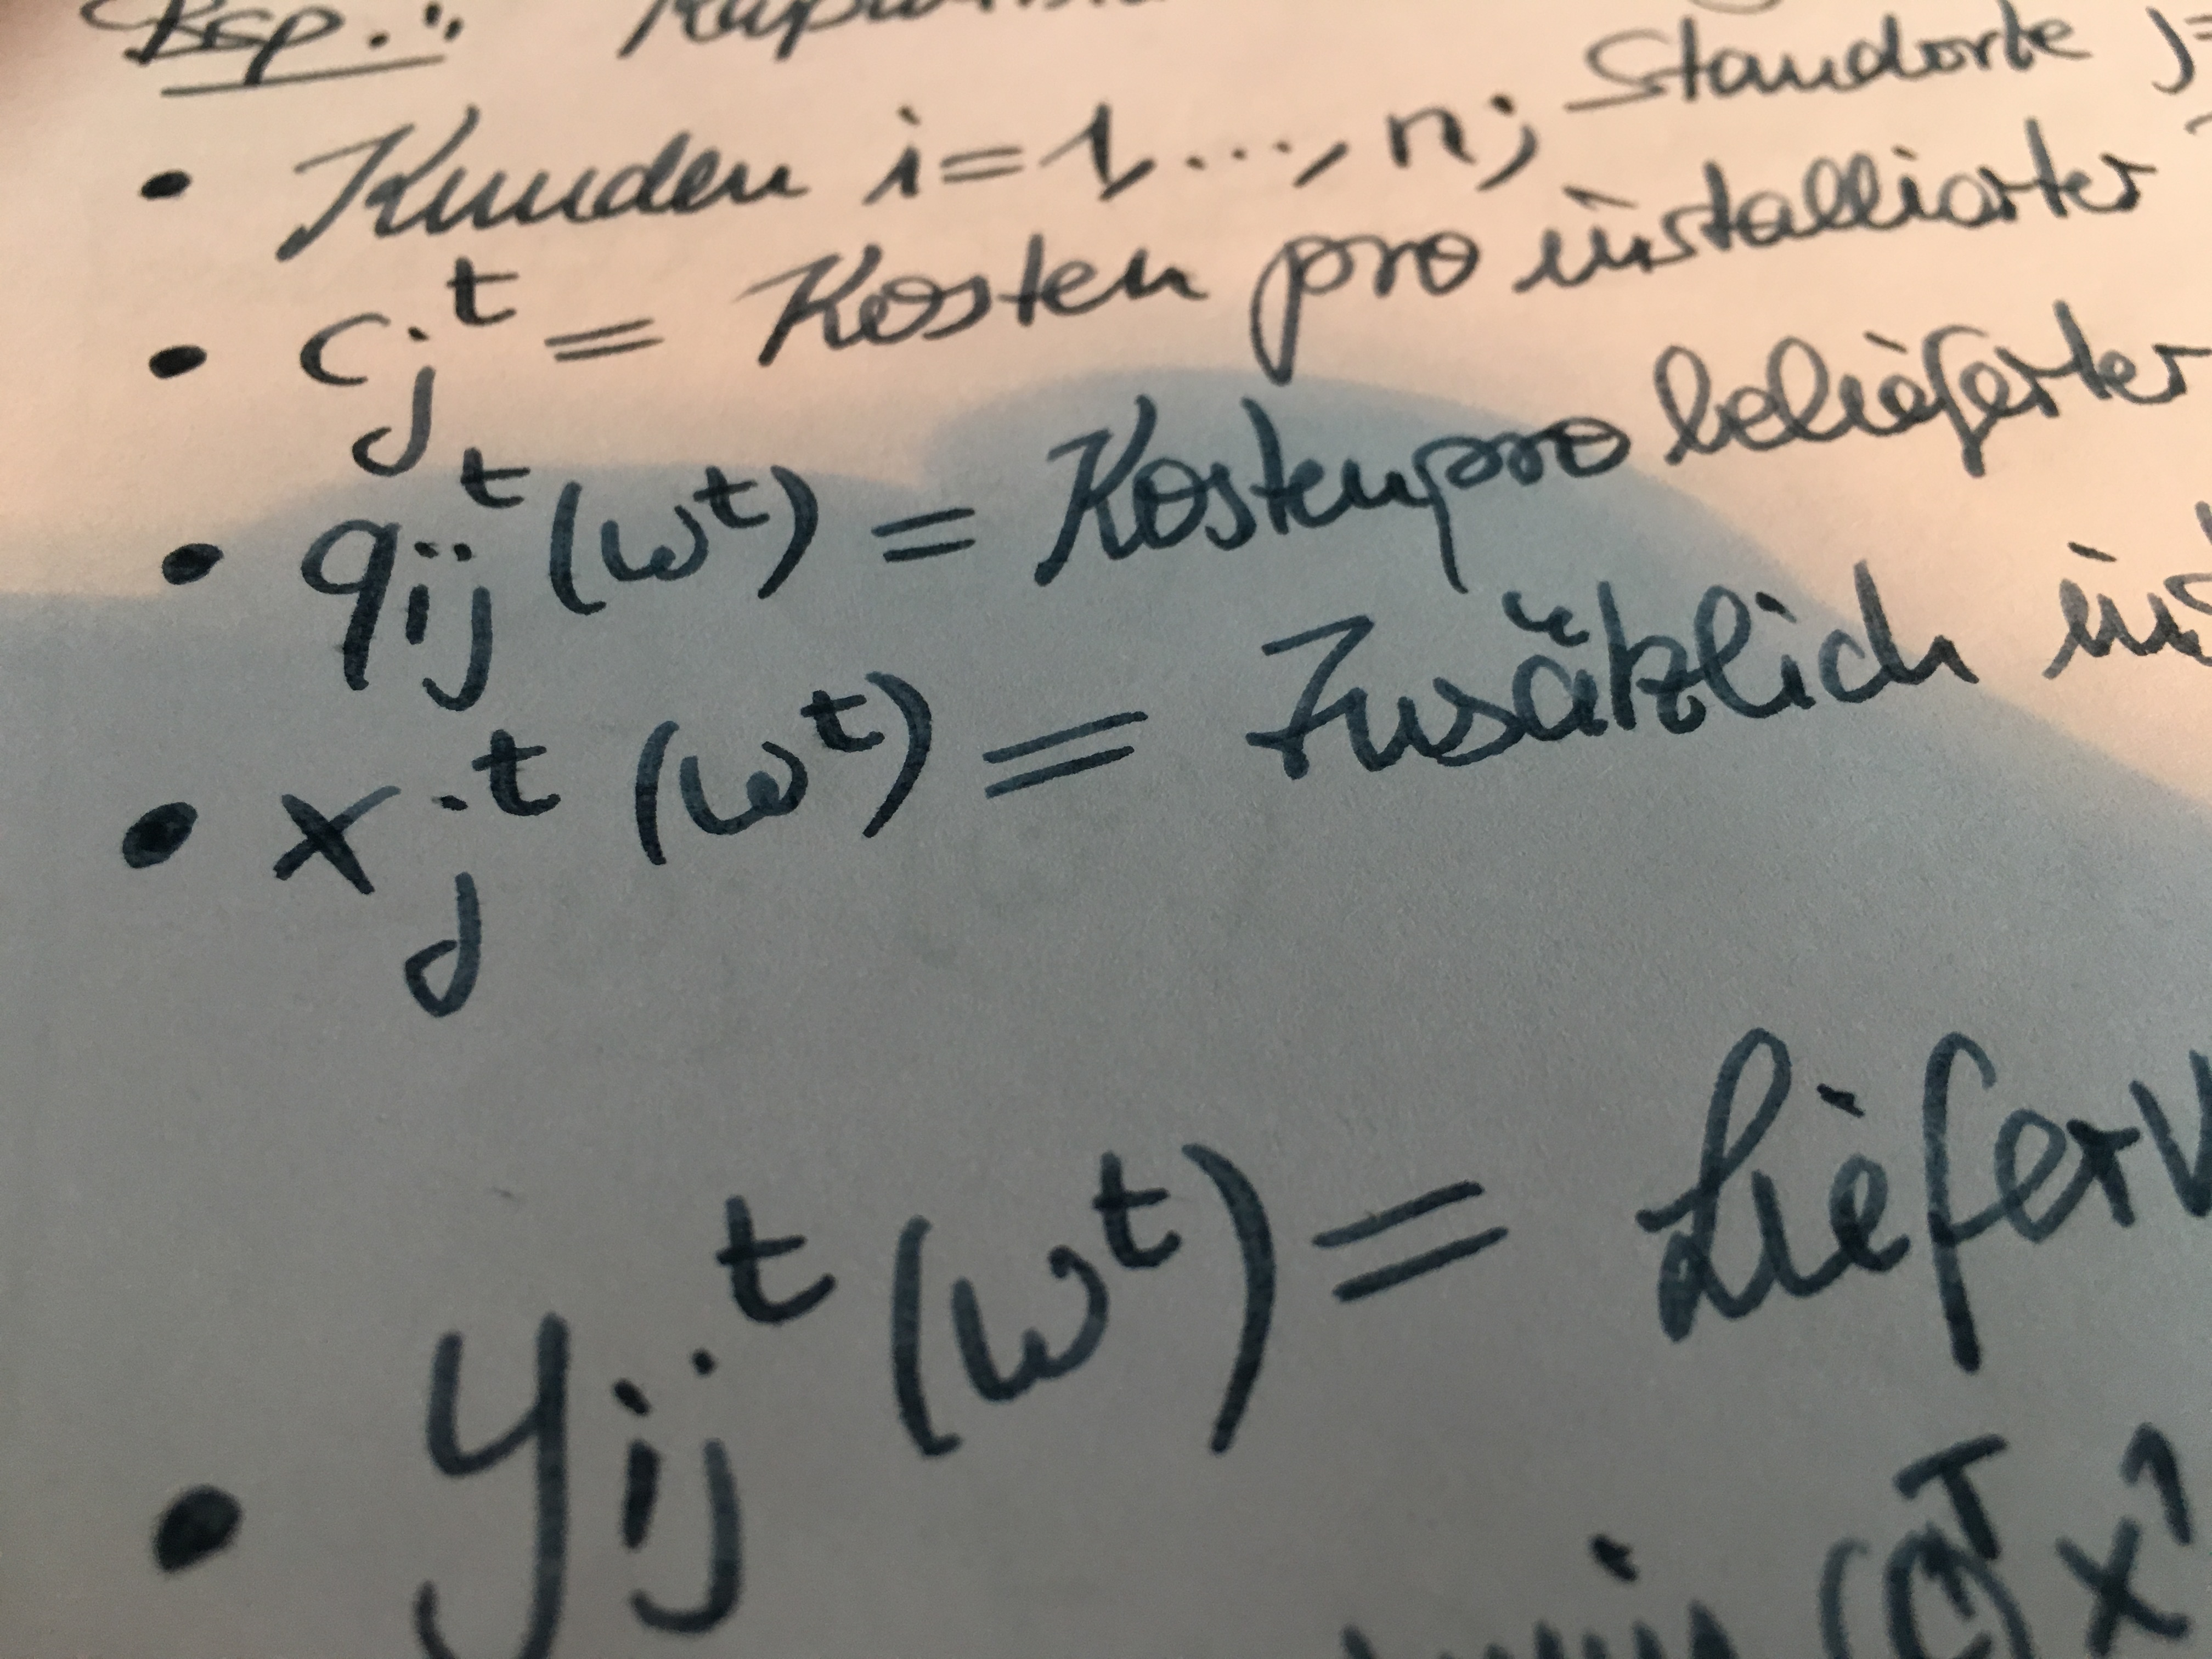 Bsp.:
• Kunden i=1,...,n; Standorte j=
• c_j^t = Kosten pro installierter
• q_ij^t (ω^t) = Kosten pro belieferter
• x_j^t (ω^t) = Zusätzlich ins
• y_ij^t (ω^t) = Lieferv
min (c^1)^T x^1